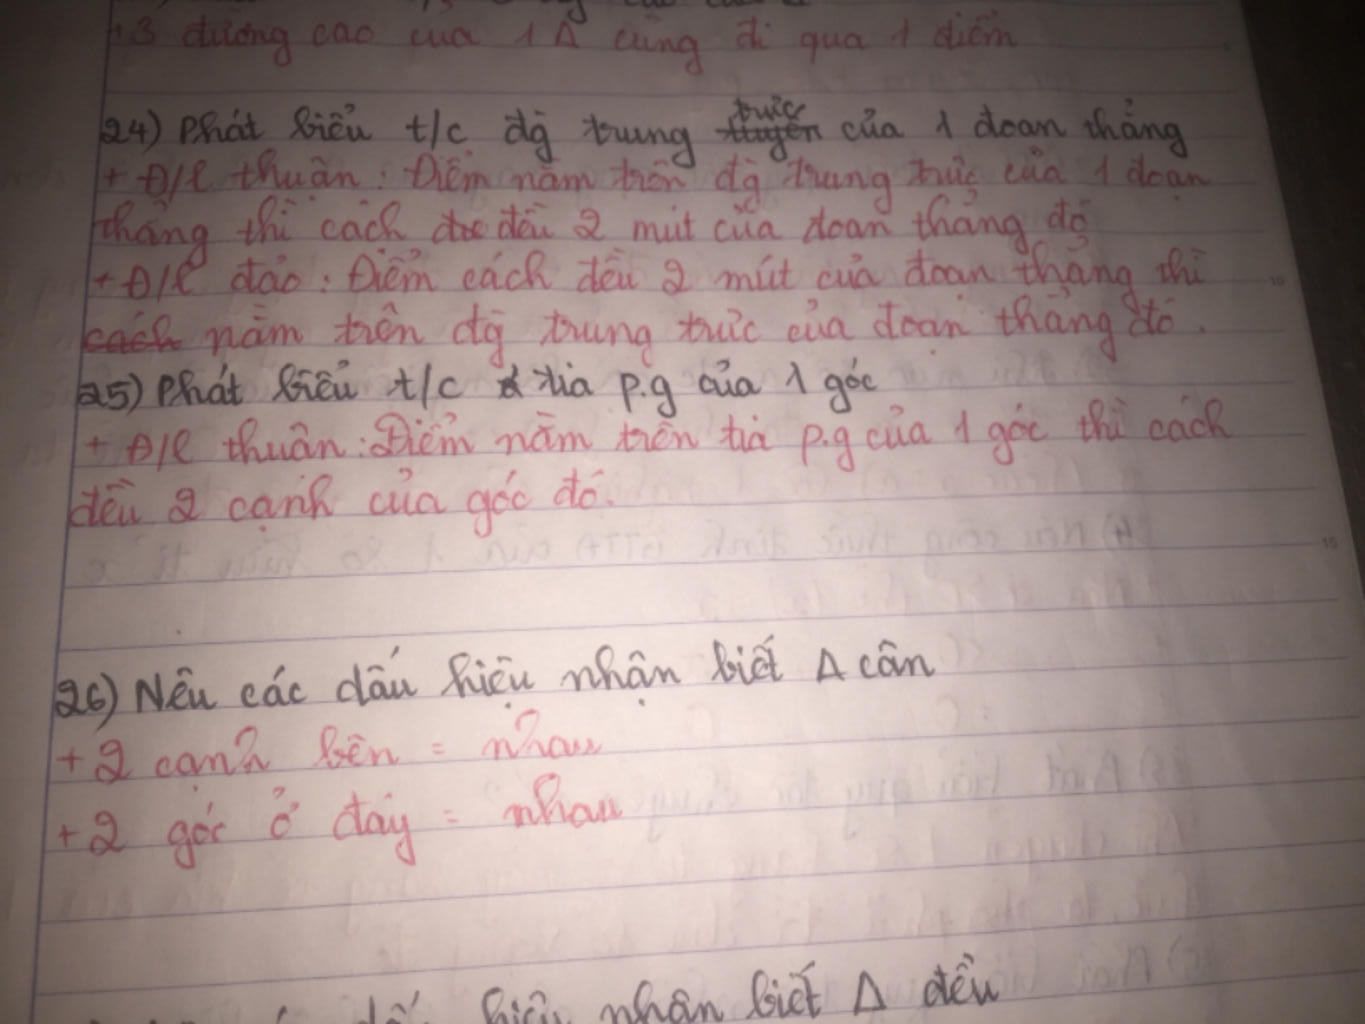 +3 đường cao của 1 Δ cùng đi qua 1 điểm
24) Phát biểu t/c đg trung trực của 1 đoạn thẳng
+ Đ/l thuận: Điểm nằm trên đg trung trực của 1 đoạn
thẳng thì cách đều 2 mút của đoạn thẳng đó
+ Đ/l đảo: Điểm cách đều 2 mút của đoạn thẳng thì
nằm trên đg trung trực của đoạn thẳng đó.
25) Phát biểu t/c tia p.g của 1 góc
+ Đ/l thuận: Điểm nằm trên tia p.g của 1 góc thì cách
đều 2 cạnh của góc đó.
26) Nêu các dấu hiệu nhận biết Δ cân
+ 2 cạnh bên = nhau
+ 2 góc ở đáy = nhau
hiệu nhận biết Δ đều